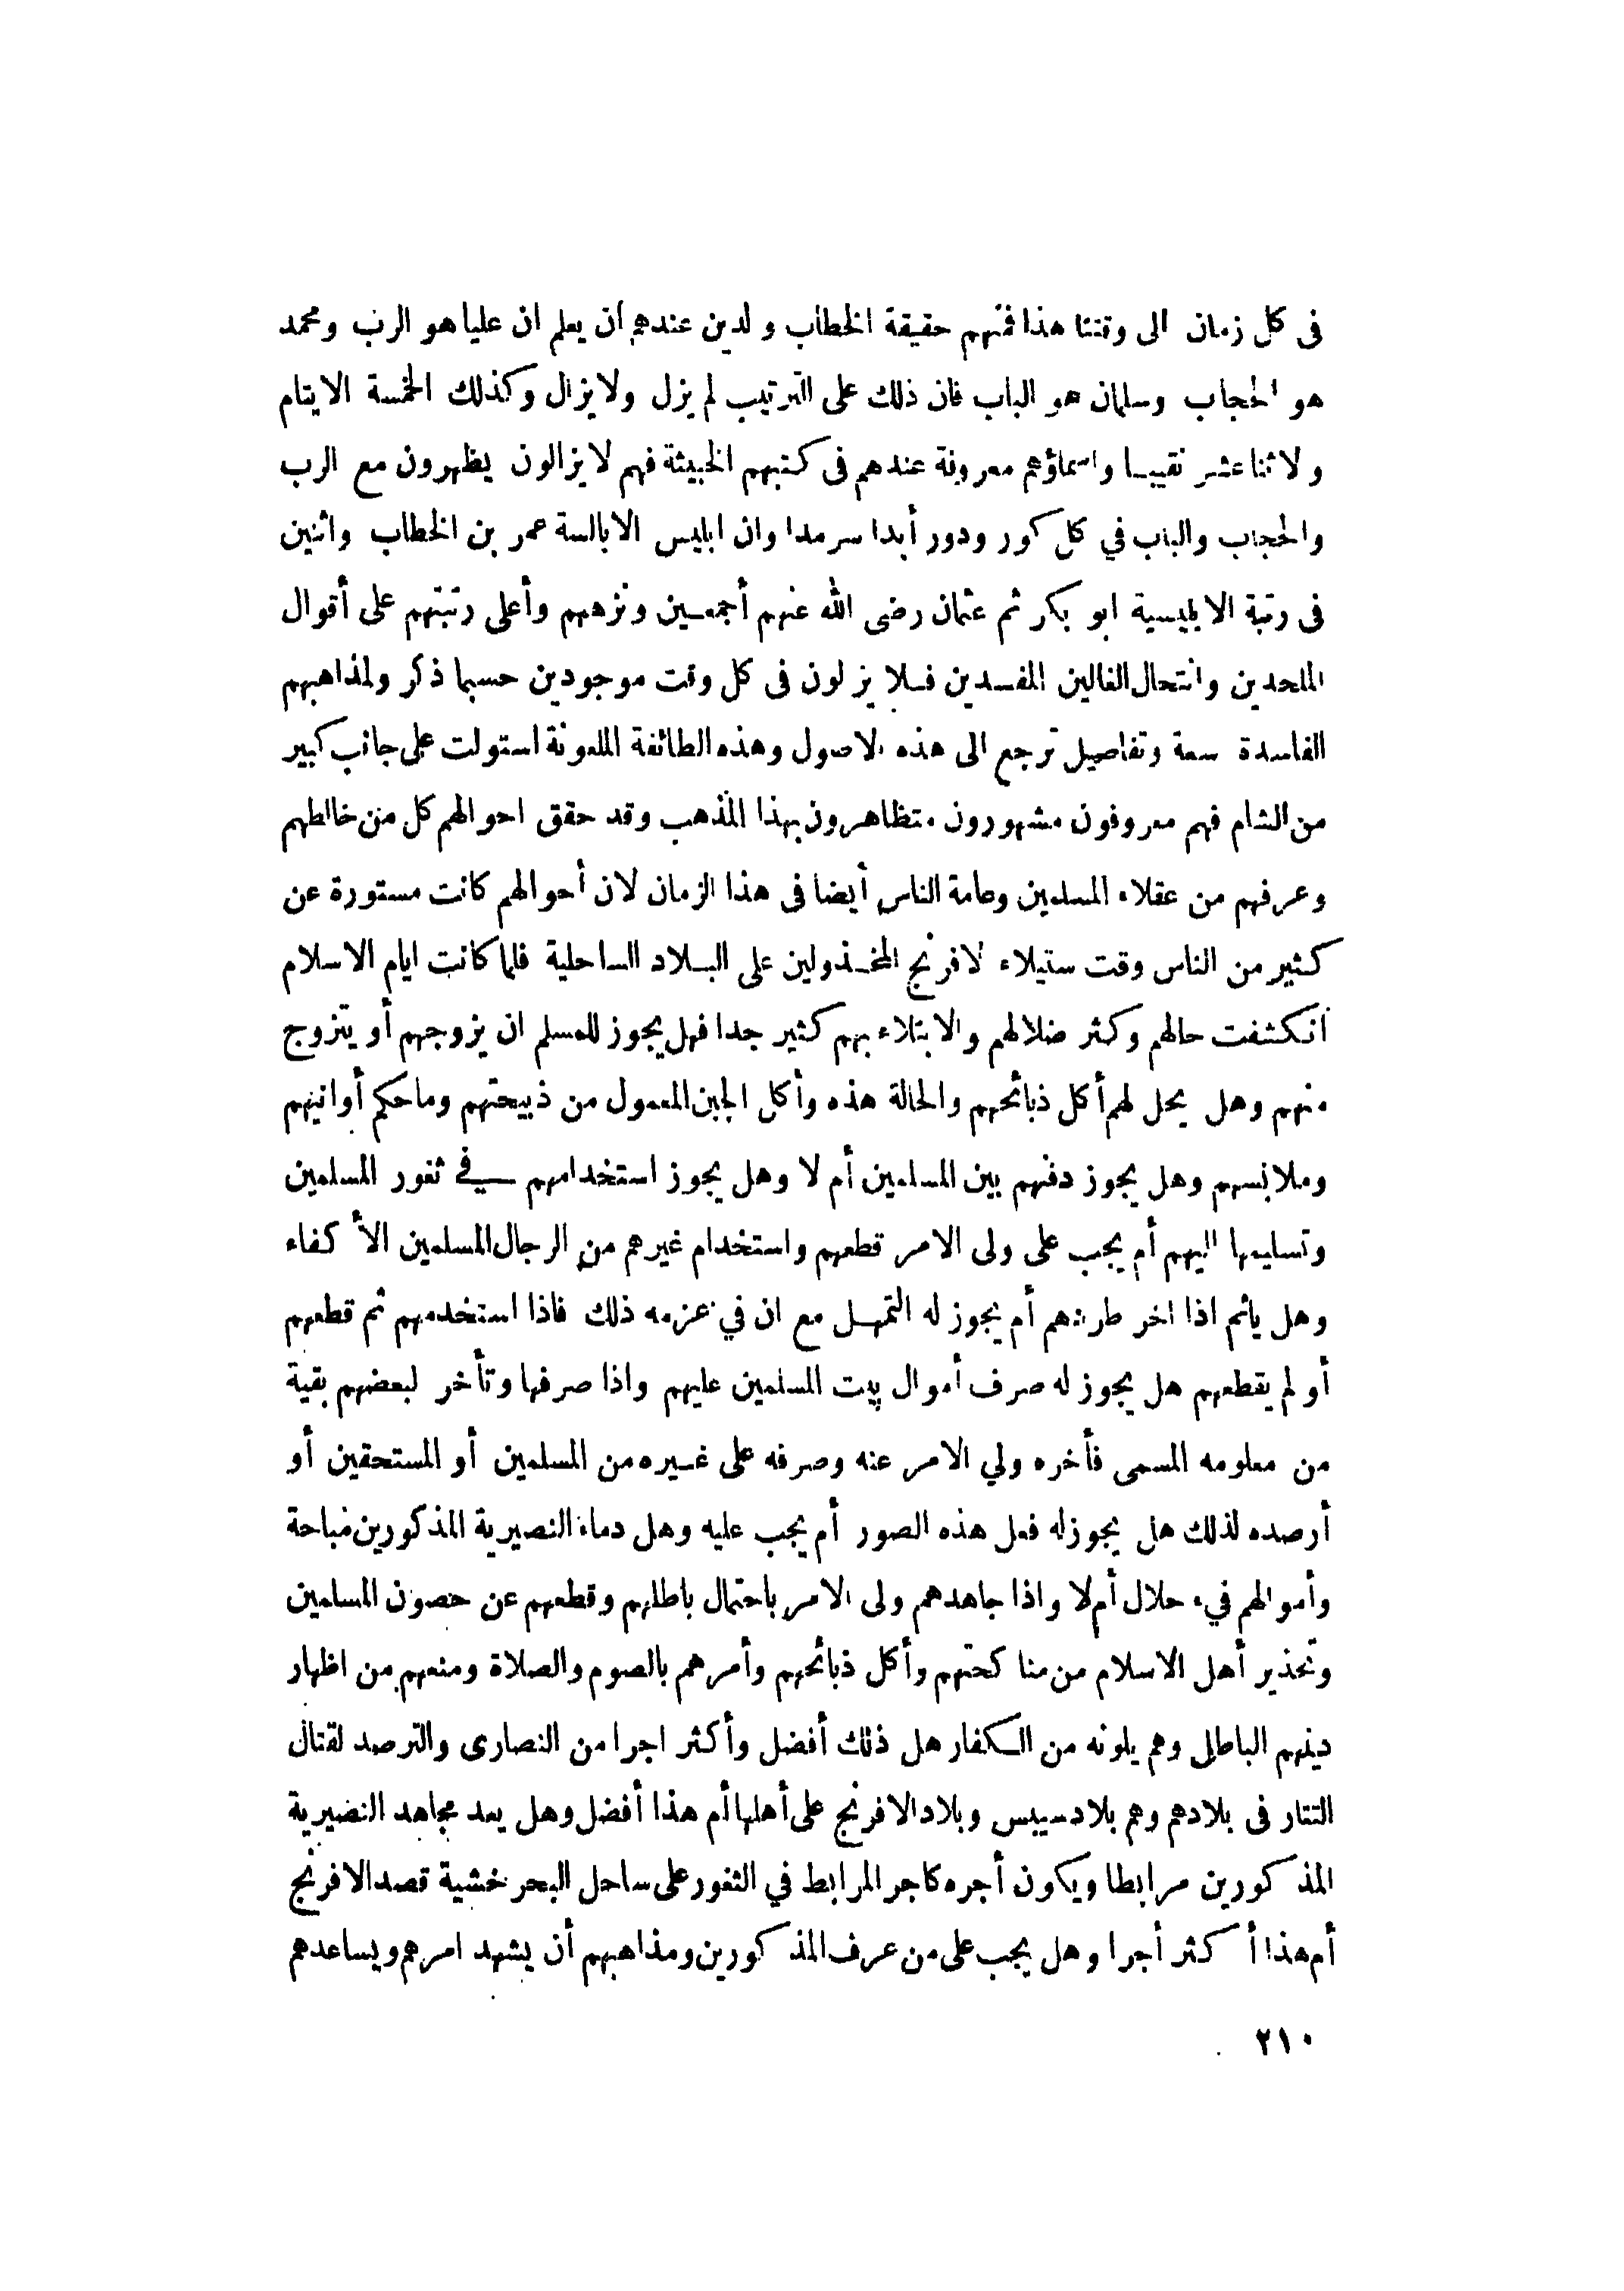 فى كل زمان الى وقتنا هذا فمنهم حقيقة الخطاب و لدين عندهم أن يعلم ان عليا هو الرب ومحمد
هو الحجاب وسلمان هو الباب فان ذلك على الترتيب لم يزل ولا يزال وكذلك الخمسة الايتام
و لاثنا عشر نقيبا واسماؤهم معروفة عندهم فى كتبهم الخبيثة فهم لا يزالون يظهرون مع الرب
والحجاب والباب في كل كور ودور أبدا سرمدا وان ابليس الابالسة عمر بن الخطاب واثنين
فى رتبة الابليسية ابو بكر ثم عثمان رضى الله عنهم أجمعين ونزههم وأعلى رتبتهم على أقوال
الملحدين وانتحال الغالين المفسدين فلا يزلون فى كل وقت موجودين حسبما ذكر ولمذاهبهم
الفاسدة سعة وتفاصيل ترجع الى هذه الاصول وهذه الطائفة الملعونة استولت على جانب كبير
من الشام فهم معروفون مشهورون متظاهرون بهذا المذهب وقد حقق احوالهم كل من خالطهم
وعرفهم من عقلاء المسلمين وعامة الناس أيضا فى هذا الزمان لان أحوالهم كانت مستورة عن
كثير من الناس وقت ستيلاء لافرنج المخذولين على البلاد الساحلية فلما كانت ايام الاسلام
انكشفت حالهم وكثر ضلالهم والابتلاء بهم كثير جدا فهل يجوز للمسلم ان يزوجهم أو يتزوج
منهم وهل يحل لهم أكل ذبائحهم والحالة هذه وأكل الجبن المعمول من ذبيحتهم وما حكم أوانيهم
وملابسهم وهل يجوز دفنهم بين المسلمين أم لا وهل يجوز استخدامهم في ثغور المسلمين
وتسليمها اليهم أم يجب على ولى الامر قطعهم واستخدام غيرهم من الرجال المسلمين الأكفاء
وهل يأثم اذا اخر طردهم أم يجوز له التمهل مع ان في عزمه ذلك فاذا استخدمهم ثم قطعهم
أو لم يقطعهم هل يجوز له صرف أموال بيت المسلمين عليهم واذا صرفها وتأخر لبعضهم بقية
من معلومه المسمى فأخره ولي الامر عنه وصرفه على غيره من المسلمين أو المستحقين أو
أرصده لذلك هل يجوز له فعل هذه الصور أم يجب عليه وهل دماء النصيرية المذكورين مباحة
وأموالهم فيء حلال أم لا واذا جاهدهم ولى الامر باحتمال باطلهم وقطعهم عن حصون المسلمين
وتحذير أهل الاسلام من مناكحتهم وأكل ذبائحهم وأمرهم بالصوم والصلاة ومنعهم من اظهار
دينهم الباطل وهم يلونه من الكفار هل ذلك أفضل وأكثر اجرا من النصارى والترصد لقتال
التتار فى بلادهم وهم بلاد سيبس وبلاد الافرنج على أهلها أم هذا أفضل وهل يعد مجاهد النضيرية
المذكورين مرابطا ويكون أجره كاجر المرابط في الثغور على ساحل البحر خشية قصد الافرنج
أم هذا أكثر أجرا وهل يجب على من عرف المذكورين ومذاهبهم أن يشهد امرهم ويساعدهم
٢١٠